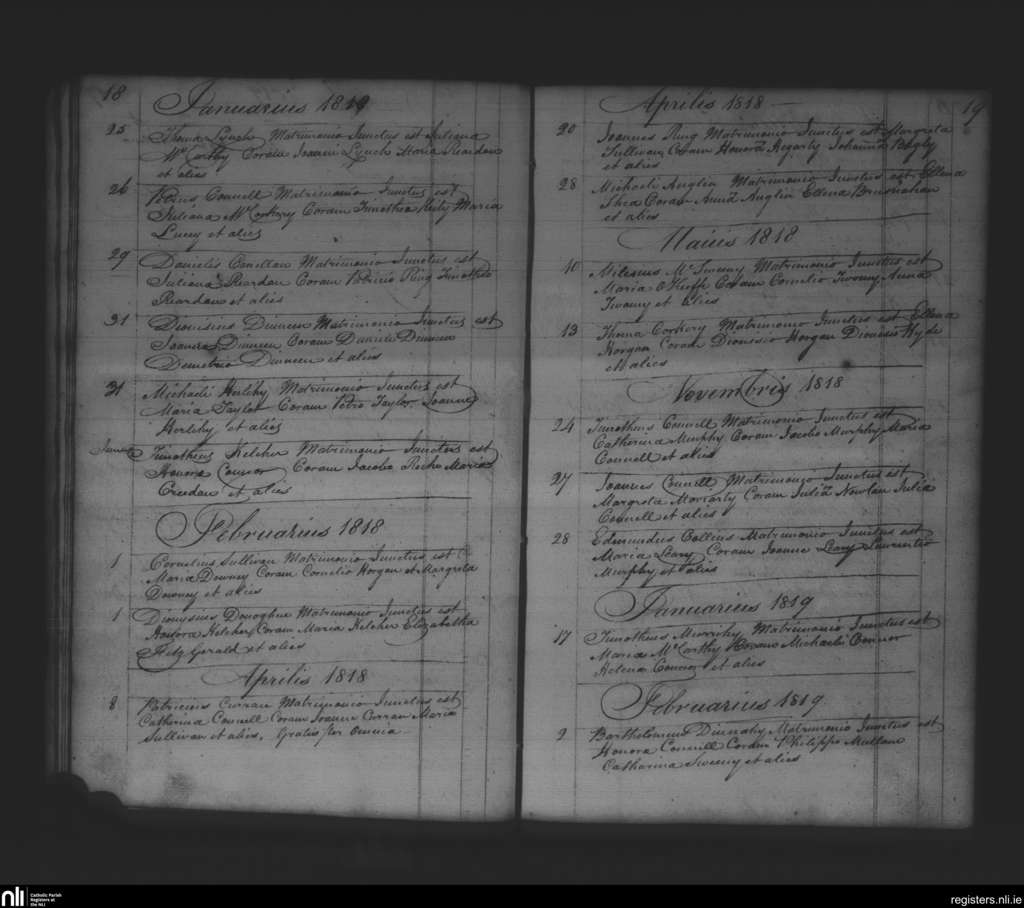 18
Januarius 1819
25 Thoma Lynch Matrimonio Junctus est Juliana
McCarthy Coram Joanni Lynch Maria Reardan
et aliis
26 Connell Matrimonio Junctus est
Juliana McCorkery Coram Timothio Maria
Lucey et aliis
29 Danielis Matrimonio Junctus est
Juliana Reardan Coram Ring Timothio
Reardan et aliis
31 Dionisius Dinneen Matrimonio Junctus est
Joanna Dinneen Coram Daniele Dinneen
Demetrio Dinneen et aliis
31 Michaeli Herlihy Matrimonio Junctus est
Maria Taylor Coram Petro Taylor Joanne
Herlihy et aliis
Timotheus Kelcher Matrimonio Junctus est
Honora Connor Coram Jacobo Maria
Creedan et aliis
Februarius 1818
1 Cornelius Sullivan Matrimonio Junctus est
Maria Downey Coram Cornelio Horgan et Margreta
Downey et aliis
1 Dionysius Donoghue Matrimonio Junctus est
Honora Kelcher Coram Maria Kelcher Elizabetha
Fitz Gerald et aliis
Aprilis 1818
8 Patricius Curran Matrimonio Junctus est
Catherina Connell Coram Joanne Curran Maria
Sullivan et aliis. Gratis per omnia
Aprilis 1818
19
20 Joannes Ring Matrimonio Junctus est Margreta
Sullivan Coram Honora Hegarty Johanna
et aliis
28 Michaeli Anglin Matrimonio Junctus est Ellena
Shea Coram Anna Anglin Ellena Brusnahan
et aliis
Maius 1818
10 Milesius McSweeny Matrimonio Junctus est
Maria OKeeffe Coram Cornelio Twomy Anna
Twomy et aliis
13 Thoma Corkery Matrimonio Junctus est Ellena
Horgan Coram Dionisio Horgan Dionisio Hyde
et aliis
Novembris 1818
24 Timotheus Connell Matrimonio Junctus est
Catherina Murphy Coram Jacobo Murphy Maria
Connell et aliis
27 Joannes Connell Matrimonio Junctus est
Margreta Moriarty Coram Julia Nowlan Julia
Connell et aliis
28 Edmundus Collins Matrimonio Junctus est
Maria Leary Coram Joanne Leary Laurentio
Murphy et aliis
Januarius 1819
17 Timotheus Murrihy Matrimonio Junctus est
Maria McCarthy Coram Michaelis Connor
Helena Connor et aliis
Februarius 1819
9 Bartholomeus Matrimonio Junctus est
Honora Connell Coram Philippo Mullane
Catharina Sweeny et aliis
nli
Catholic Parish
Registers at
the NLI
registers.nli.ie